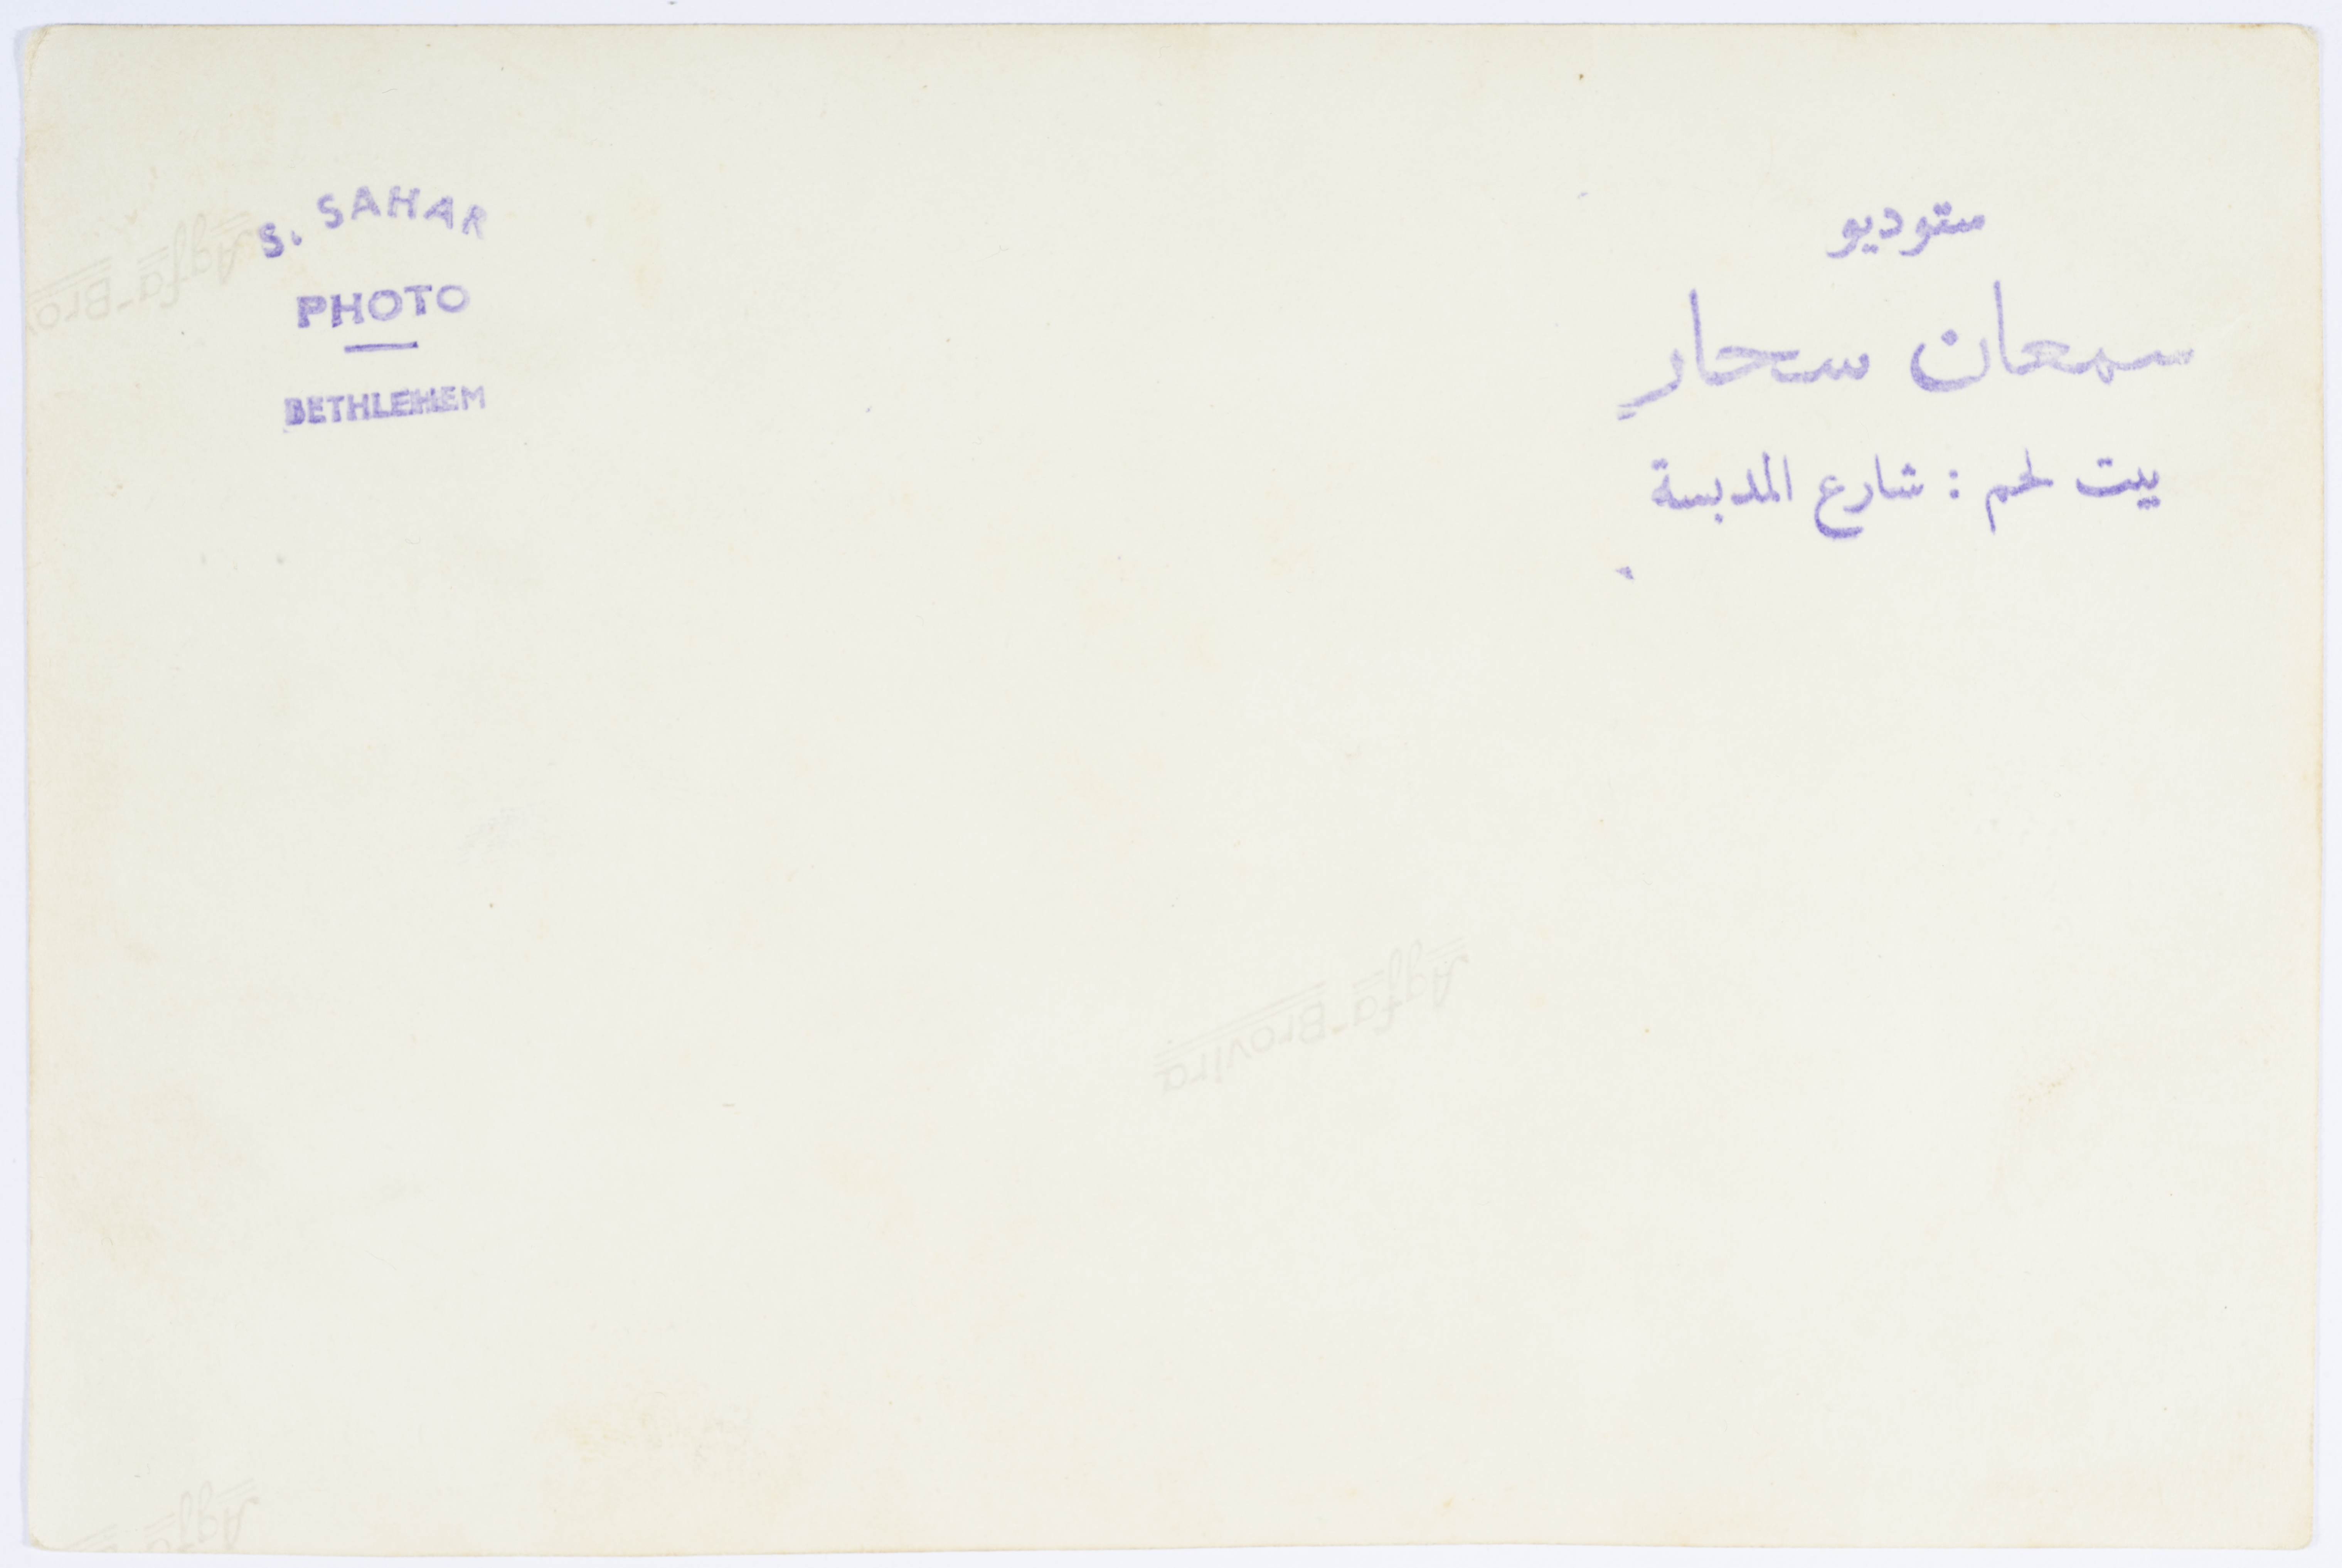 S. SAHAR
PHOTO
BETHLEHEM
ستوديو
سمعان سحار
بيت لحم : شارع المدبسة
Agfa-Brovira
Agfa-Bro
Agfa